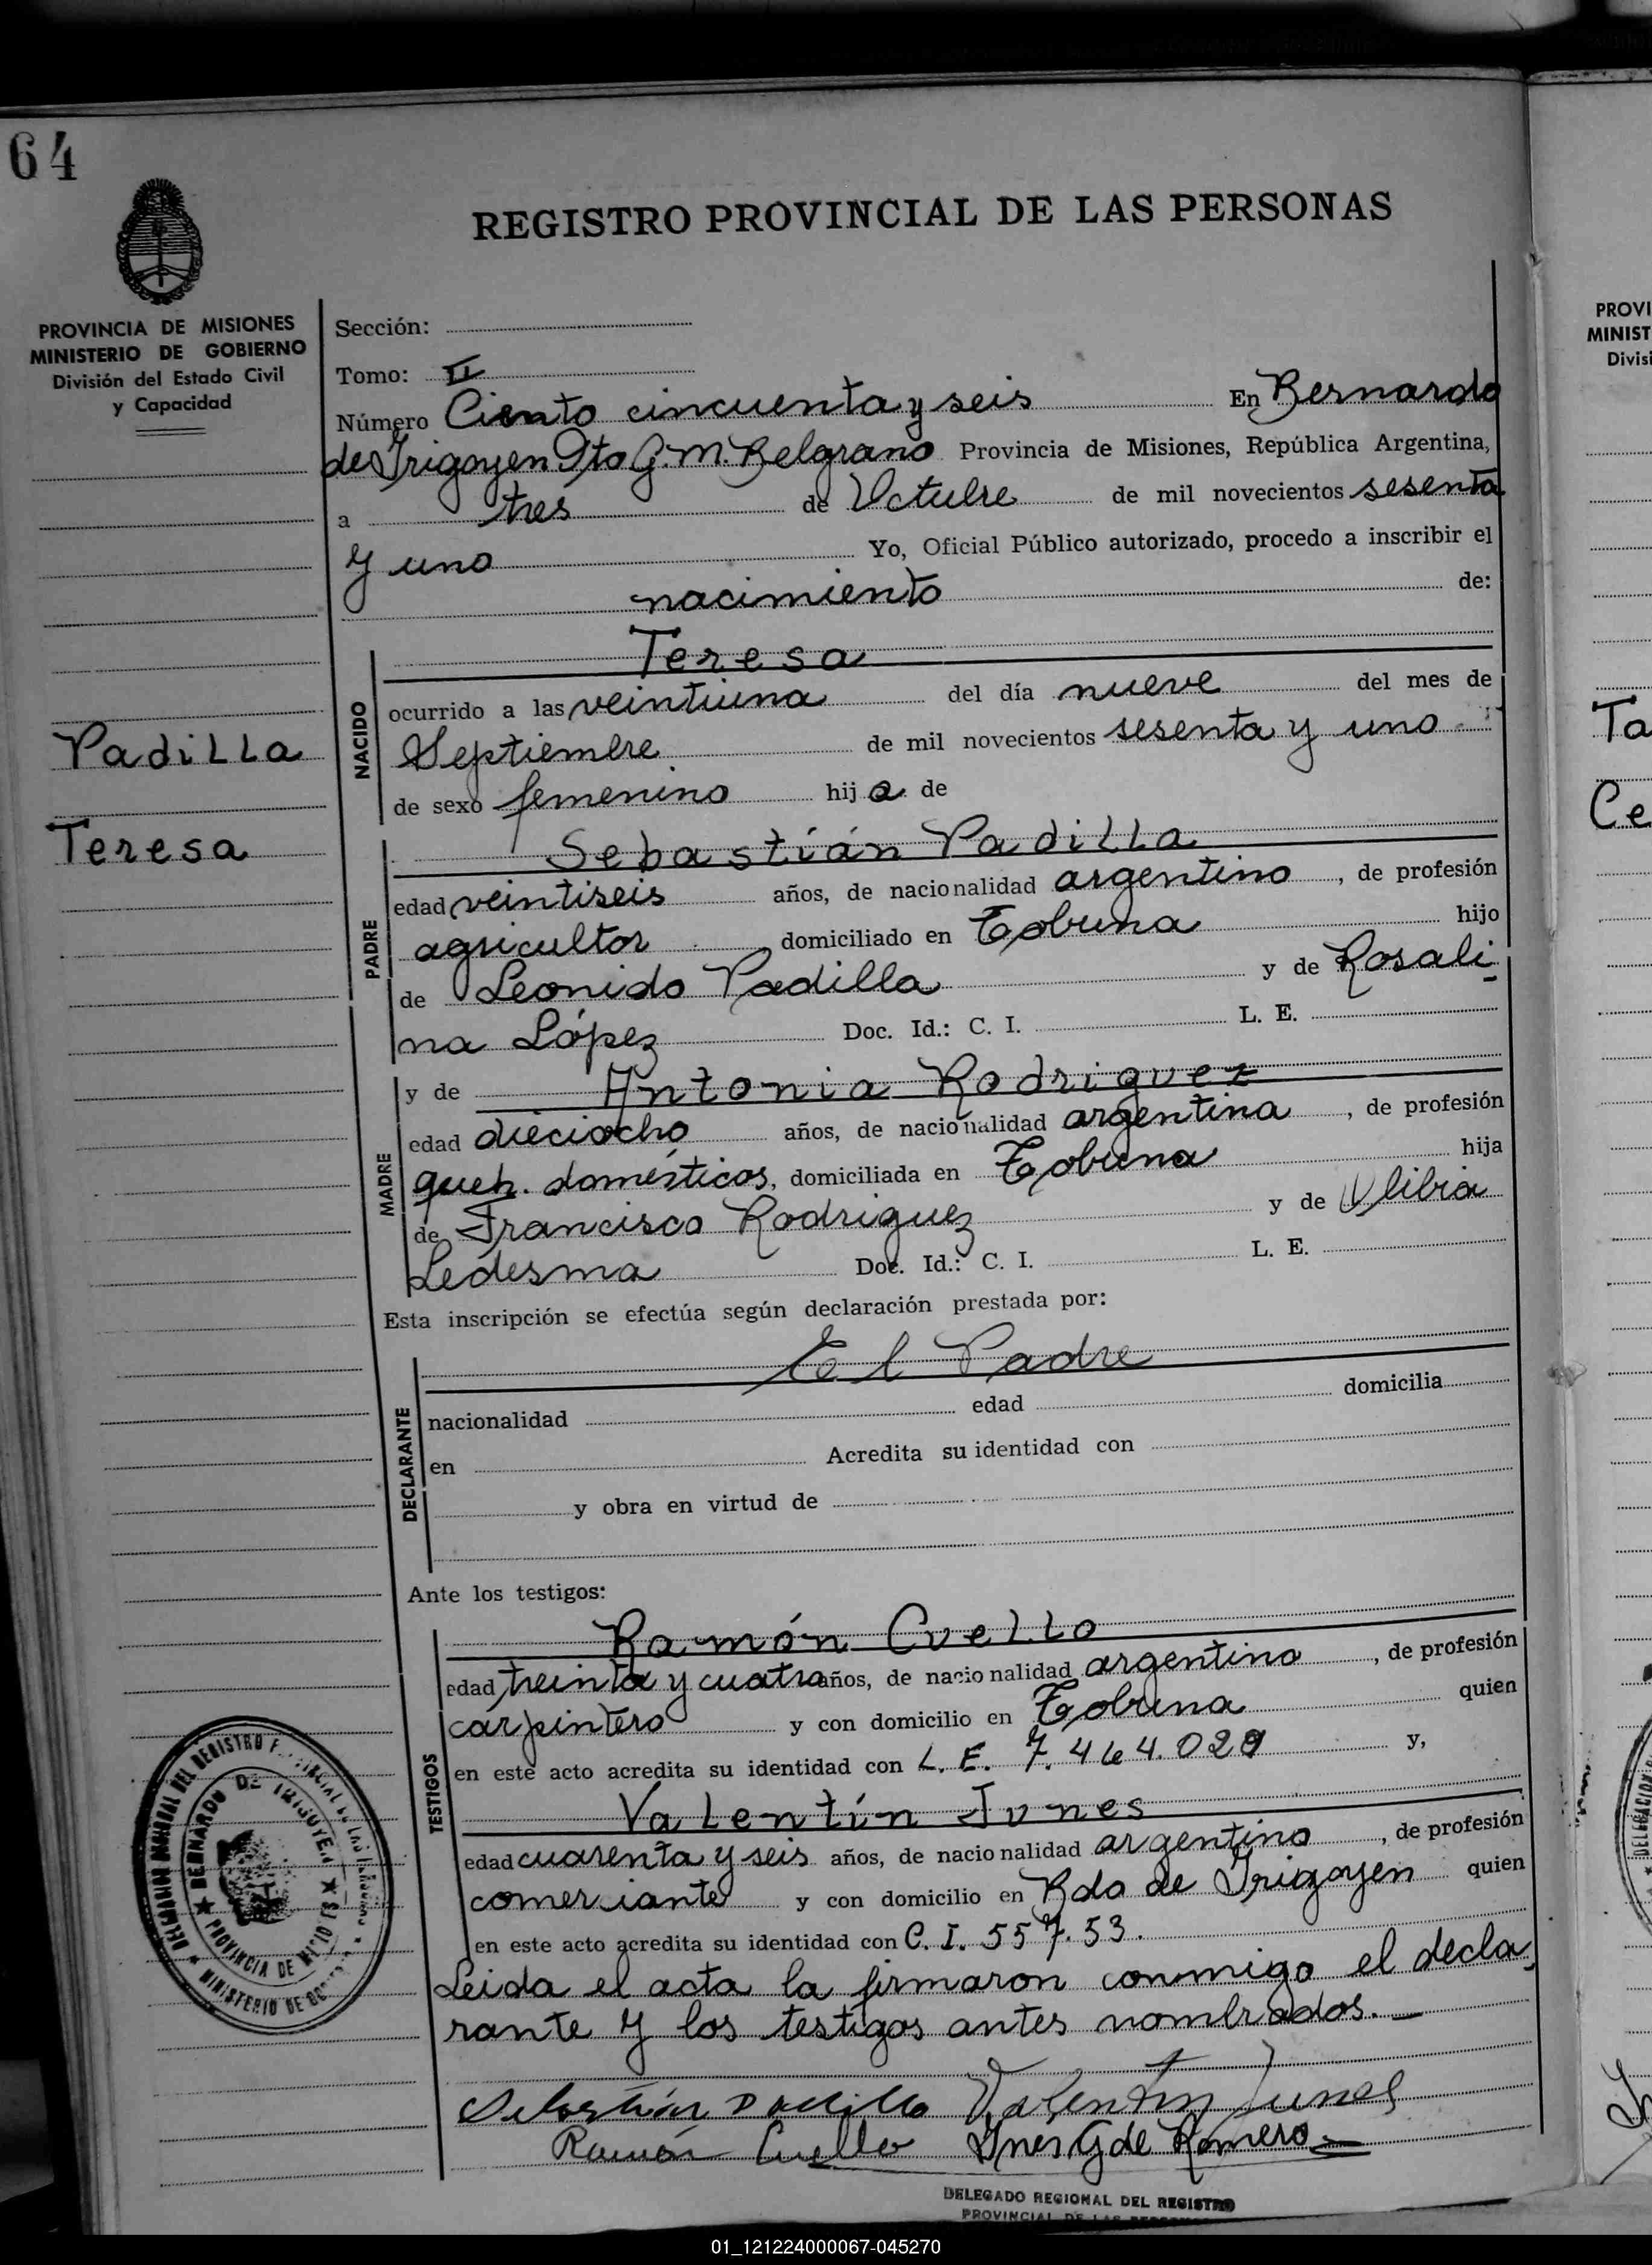 64
REGISTRO PROVINCIAL DE LAS PERSONAS
PROVINCIA DE MISIONES
MINISTERIO DE GOBIERNO
División del Estado Civil
y Capacidad
Sección:
Tomo: II
Número Ciento cincuenta y seis En Bernardo
de Irigoyen Dto G. M. Belgrano Provincia de Misiones, República Argentina,
a tres de Octubre de mil novecientos sesenta
y uno Yo, Oficial Público autorizado, procedo a inscribir el
nacimiento de:
Padilla
Teresa
NACIDO
Teresa
ocurrido a las veintiuna del día nueve del mes de
Septiembre de mil novecientos sesenta y uno
de sexo femenino hija de
PADRE
Sebastián Padilla
edad veintiseis años, de nacionalidad argentino, de profesión
agricultor domiciliado en Tobuna hijo
de Leonido Padilla y de Rosali
na López Doc. Id.: C. I. L. E.
MADRE
y de Antonia Rodriguez
edad dieciocho años, de nacionalidad argentina, de profesión
queh. domésticos, domiciliada en Tobuna hija
de Francisco Rodriguez y de Ulibia
Ledesma Doc. Id.: C. I. L. E.
Esta inscripción se efectúa según declaración prestada por:
DECLARANTE
El Padre
nacionalidad edad domicilia
en Acredita su identidad con
y obra en virtud de
Ante los testigos:
TESTIGOS
Ramón Cuello
edad treinta y cuatro años, de nacionalidad argentino, de profesión
carpintero y con domicilio en Tobuna quien
en este acto acredita su identidad con L. E. 7.464.029 y,
Valentín Junes
edad cuarenta y seis años, de nacionalidad argentino, de profesión
comerciante y con domicilio en Bdo de Irigoyen quien
en este acto acredita su identidad con C. I. 557.53.
Leida el acta la firmaron conmigo el decla
rante y los testigos antes nombrados.
Sebastián Padilla Valentín Junes
Ramón Cuello Ines G de Romero
DELEGADO REGIONAL DEL REGISTRO
PROVINCIAL DE LAS
BERNARDO DE IRIGOYEN
PROVINCIA DE MISIONES
MINISTERIO DE
PROVI
MINIST
Divisi
Ta
Ce
01_121224000067-045270